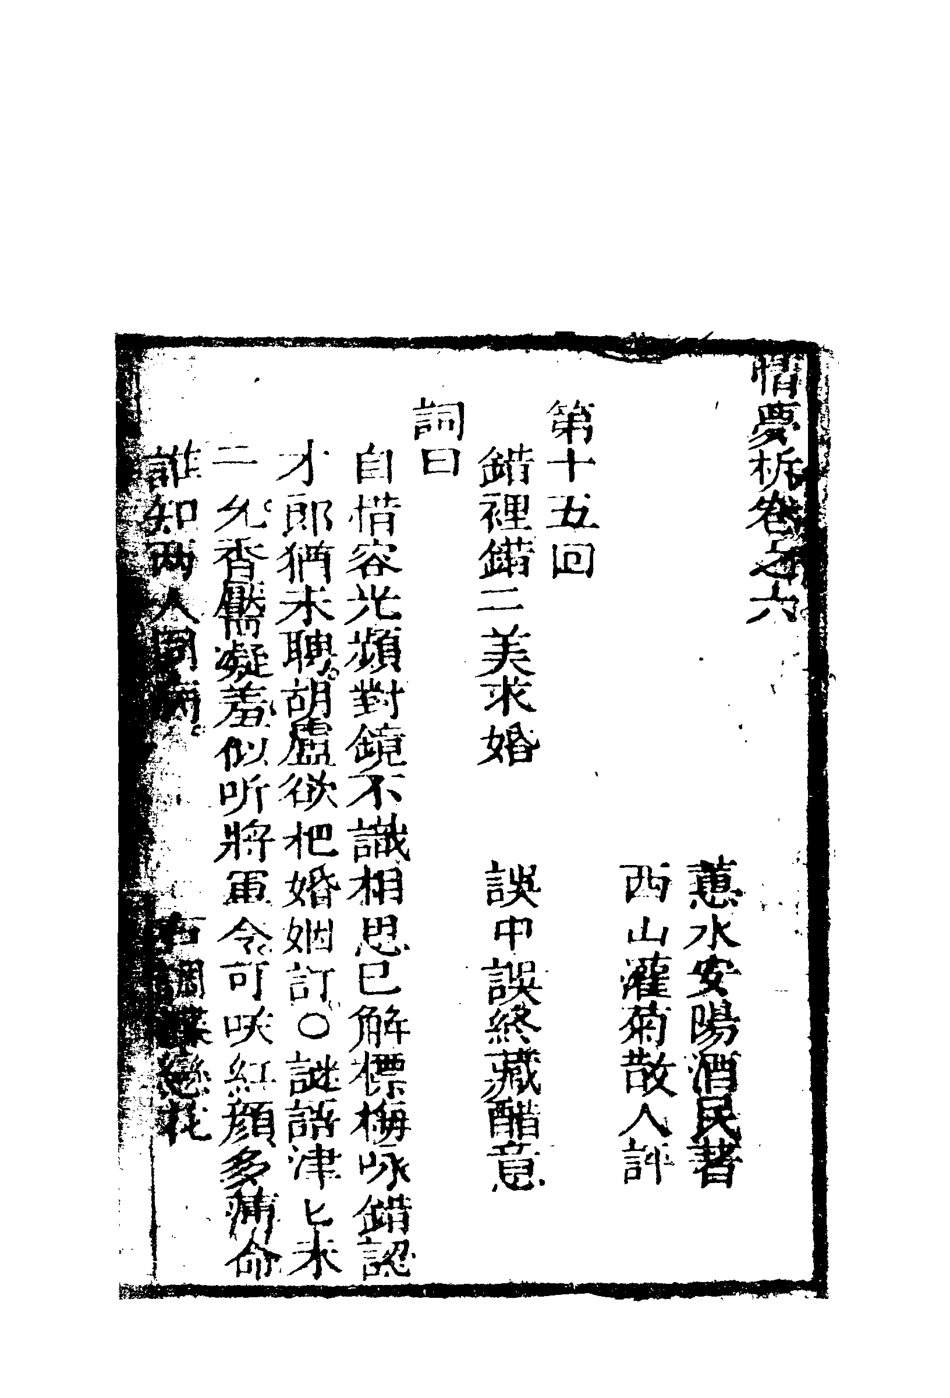 情夢柝卷之六
蕙水安陽酒民著
西山灌菊散人評
第十五回
錯裡錯二美求婚　誤中誤終藏醋意
詞曰
自惜容光頻對鏡不識相思已解標梅咏錯認
才郎猶未聘胡盧欲把婚姻訂〇謎語津匕未
二允香靨凝羞似听將軍令可咲紅顔多薄命
誰知两人同病
右調蝶戀花